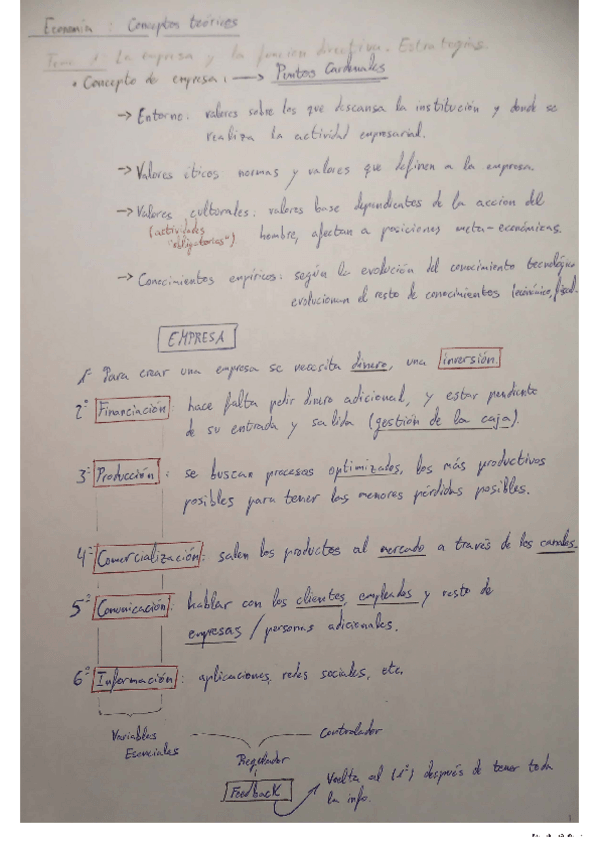 Economía : Conceptos teóricos
Tema 1: La empresa y la función directiva. Estrategias.
• Concepto de empresa: → Puntos Cardenales
→ Entorno: valores sobre los que descansa la institución y donde se
realiza la actividad empresarial.
→ Valores éticos: normas y valores que definen a la empresa.
→ Valores culturales: valores base dependientes de la acción del
(actividades "obligatorias") hombre, afectan a posiciones meta-económicas.
→ Conocimientos empíricos: según la evolución del conocimiento tecnológico
evolucionan el resto de conocimientos (económico, fiscal.
EMPRESA
1º Para crear una empresa se necesita dinero, una inversión.
2º Financiación: hace falta pedir dinero adicional, y estar pendiente
de su entrada y salida (gestión de la caja).
3º Producción: se buscan procesos optimizados, los más productivos
posibles para tener las menores pérdidas posibles.
4º Comercialización: salen los productos al mercado a través de los canales.
5º Comunicación: hablar con los clientes, empleados y resto de
empresas / personas adicionales.
6º Información: aplicaciones, redes sociales, etc.
Variables Esenciales
Controlador
Regulador
Feedback
Vuelta al (1º) después de tener toda
la info.